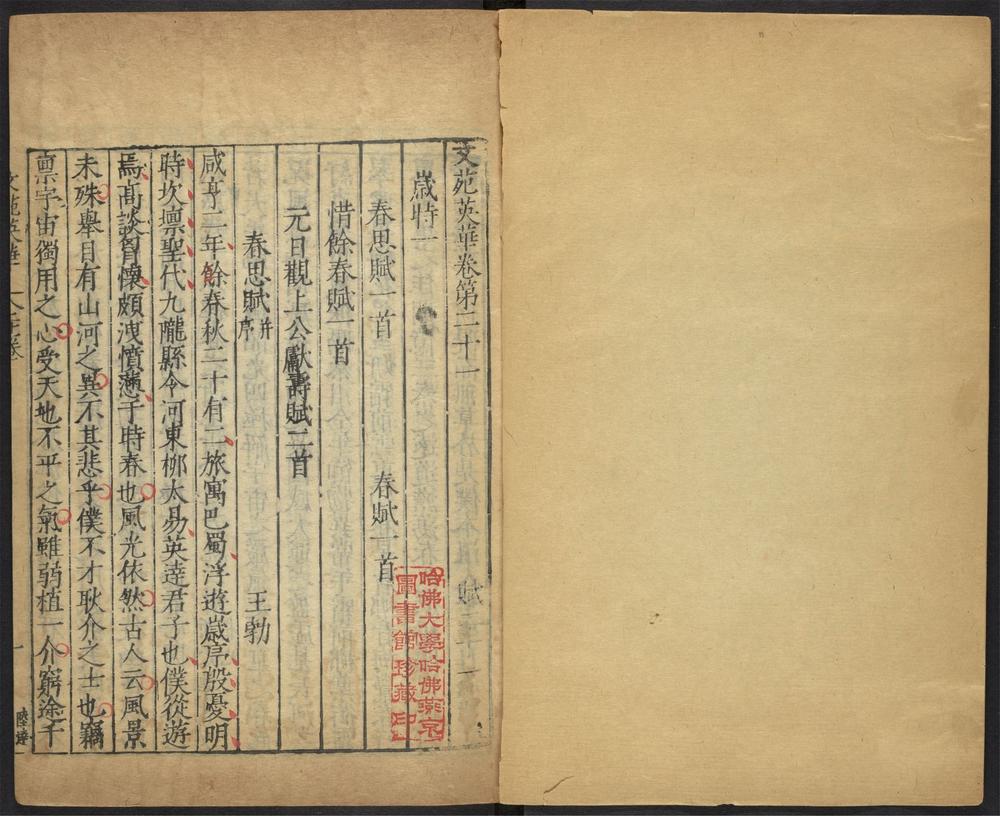 文苑英華卷第二十一　賦二十一
歲時一
春思賦一首　春賦一首
惜餘春賦一首
元日觀上公獻壽賦二首
春思賦并序　王勃
咸亨二年餘春秋二十有二旅寓巴蜀浮遊歲序殷憂明
時坎壈聖代九隴縣令河東栁太易英達君子也僕從遊
焉髙談胷懷頗洩憤懣于時春也風光依然古人云風景
未殊舉目有山河之異不其悲乎僕不才耿介之士也竊
禀宇宙獨用之心受天地不平之氣雖弱植一介窮途千
哈佛大學哈佛燕京
圖書館珍藏印